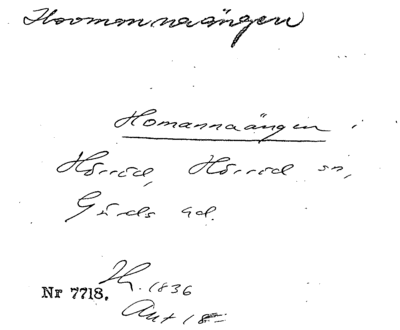 Hovmannaängen
Homannaängen i
Hörröd, Hörröd sn,
Gärds hd.
Nr 7718. 1836
Akt 18